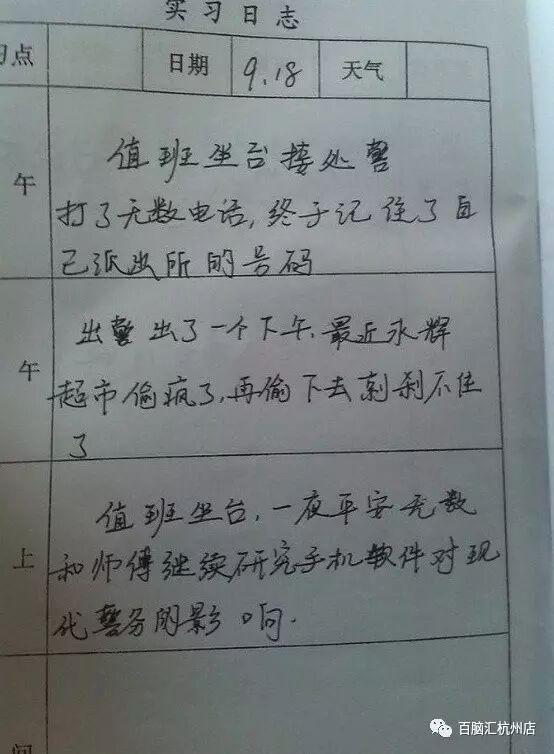 实习日志
习点 日期 9.18 天气
值班坐台接处警
午
打了无数电话,终于记住了自
己派出所的号码
出警出了一个下午.最近永辉
午
超市偷疯了,再偷下去刹不住
了
值班坐台,一夜平安无数
上
和师傅继续研究手机软件对现
代警务的影响.
间
百脑汇杭州店